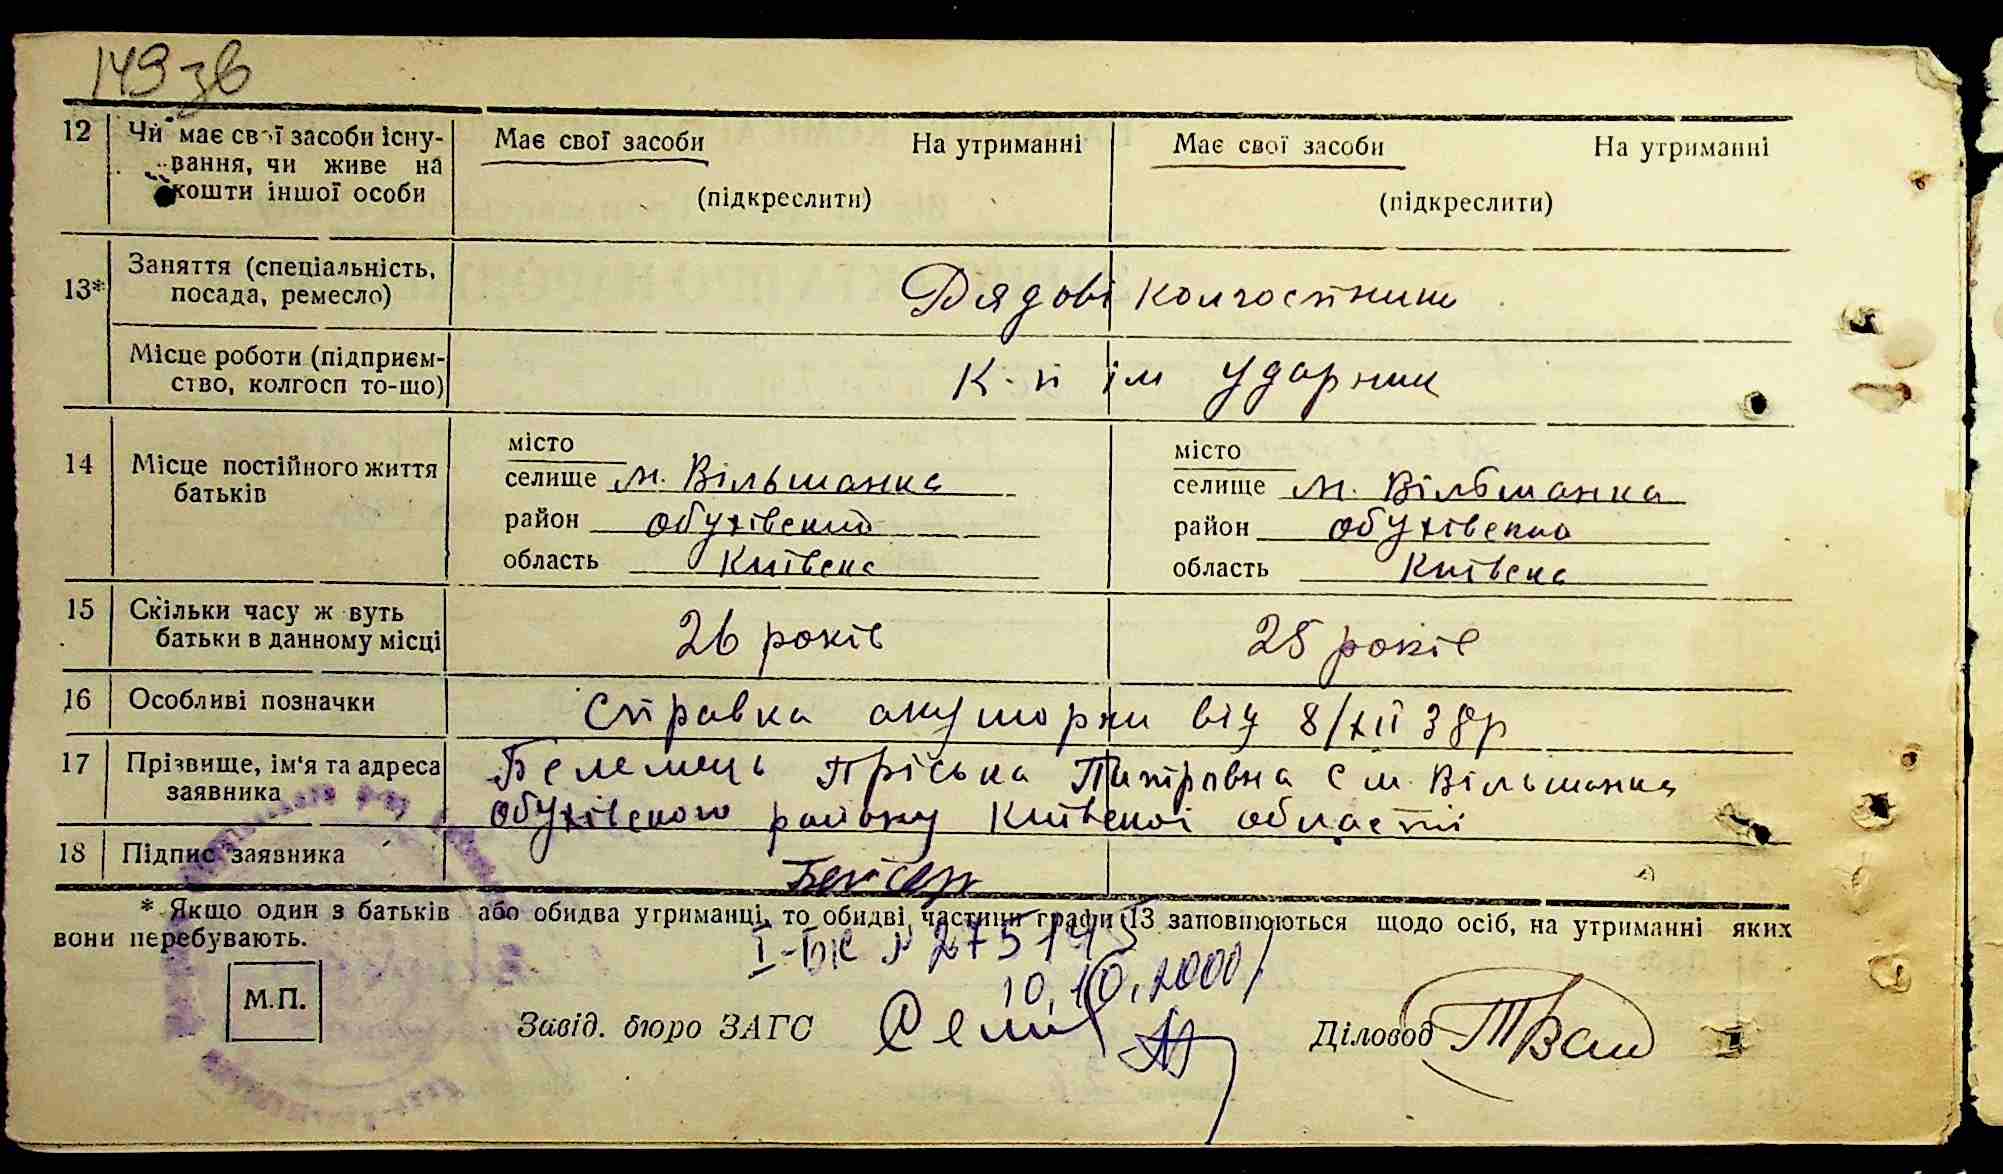 149 зв
12 Чи має свої засоби існу- Має свої засоби На утриманні Має свої засоби На утриманні
вання, чи живе на
кошти іншої особи (підкреслити) (підкреслити)
13* Заняття (спеціальність, посада, ремесло) Рядові колгоспники
Місце роботи (підприєм-
ство, колгосп то-що) К-п ім Ударник
14 Місце постійного життя
батьків
місто
селище м. Вільшанка
район Обухівский
область Київска
місто
селище м. Вільшанка
район Обухівский
область Київска
15 Скільки часу ж вуть
батьки в данному місці 26 років 25 років
16 Особливі позначки Справка акушорки від 8/XII 38р
17 Прізвище, ім'я та адреса
заявника
Прíська Питрівна с м. Вільшанка
Обухівского району Київскоі області
18 Підпис заявника
* Якщо один з батьків або обидва утриманці, то обидві частини графи 13 заповнюються щодо осіб, на утриманні яких
вони перебувають.
І-БК № 275145
10.10.2000
М.П.
Завід. бюро ЗАГС Діловод